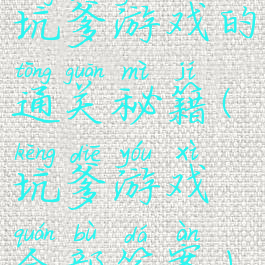 坑爹游戏的
tōng guān mì jí
通关秘籍(
kēng diē yóu xì
坑爹游戏
quán bù dá àn
全部答案)